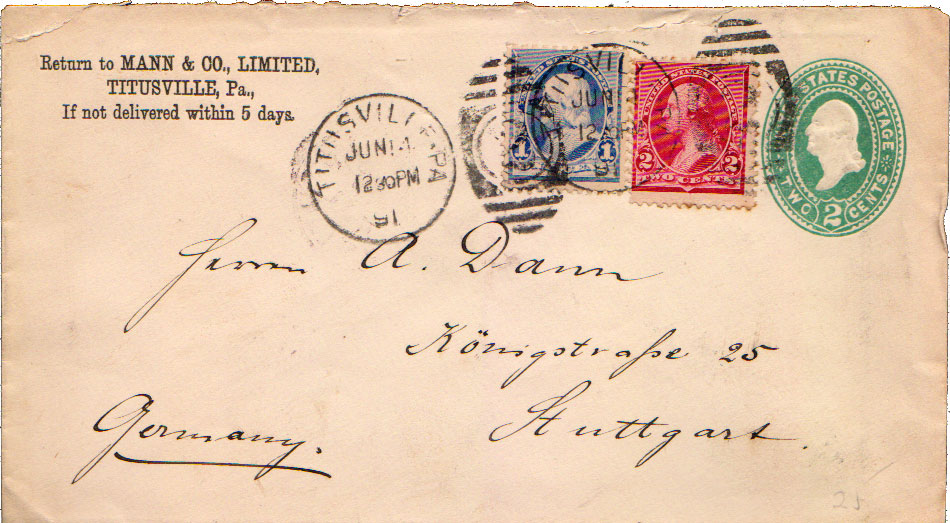 Return to MANN & CO., LIMITED,
TITUSVILLE, Pa.,
If not delivered within 5 days.
TITUSVILLE PA
JUN 1
12 30 PM
91
1 1
UNITED STATES POSTAGE
2 2
TWO CENTS
STATES POSTAGE
TWO 2 CENTS
Herren A. Dann
Königstraße 25
Stuttgart.
Germany.
25